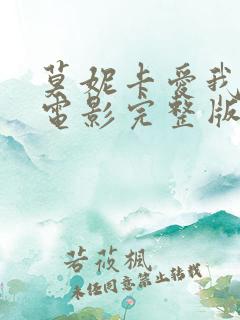 莫妮卡愛我
電影完整版
若莜楓
未经同意禁止转载